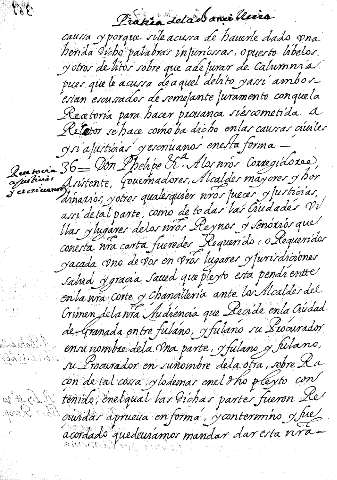 Pratica de la Chancilleria
causa y porque si le acusa de haverle dado una
herida dicho palabras injuriossas, o puesto libelos
y otros delitos sobre que a de jurar de Calumnia
pues que le acussa de aquel delito y assi ambos
estan escusados de semejante juramento con que la
Rectoria para hacer provança si es cometida. A
Rector se hace como ba dicho en las causas civiles
y si a justicias y escrivanos en esta forma —
Rectoria
a justicias
y escrivanos
36— Don Phelipe &a. A los nros Corregidores,
Asistente, Governadores, Alcaldes mayores y hor
dinarios, y otros qualesquier nros jueces y Justicias,
assi de tal parte, como de todas las Ciudades Vi
llas y lugares de los nros Reynos, y Señorios que
con esta nra carta fueredes Requerido, o Requeridos
y a cada uno de vos en vros lugares y Jurisdiciones
salud y gracia saved que pleyto esta pendiente
en la nra Corte y Chancilleria ante los Alcaldes del
Crimen de la nra Audiencia que Recide en la Ciudad
de Granada entre fulano, y fulano su Procurador
en su nombre de la una parte, y fulano y fulano,
su Procurador en su nombre de la otra, sobre Ra
con de tal cossa, y lo demas en el dho pleyto con
tenido; en el qual las dichas partes fueron Re
cividas a prueva en forma, y con termino y fue
acordado que deviamos mandar dar esta nra —